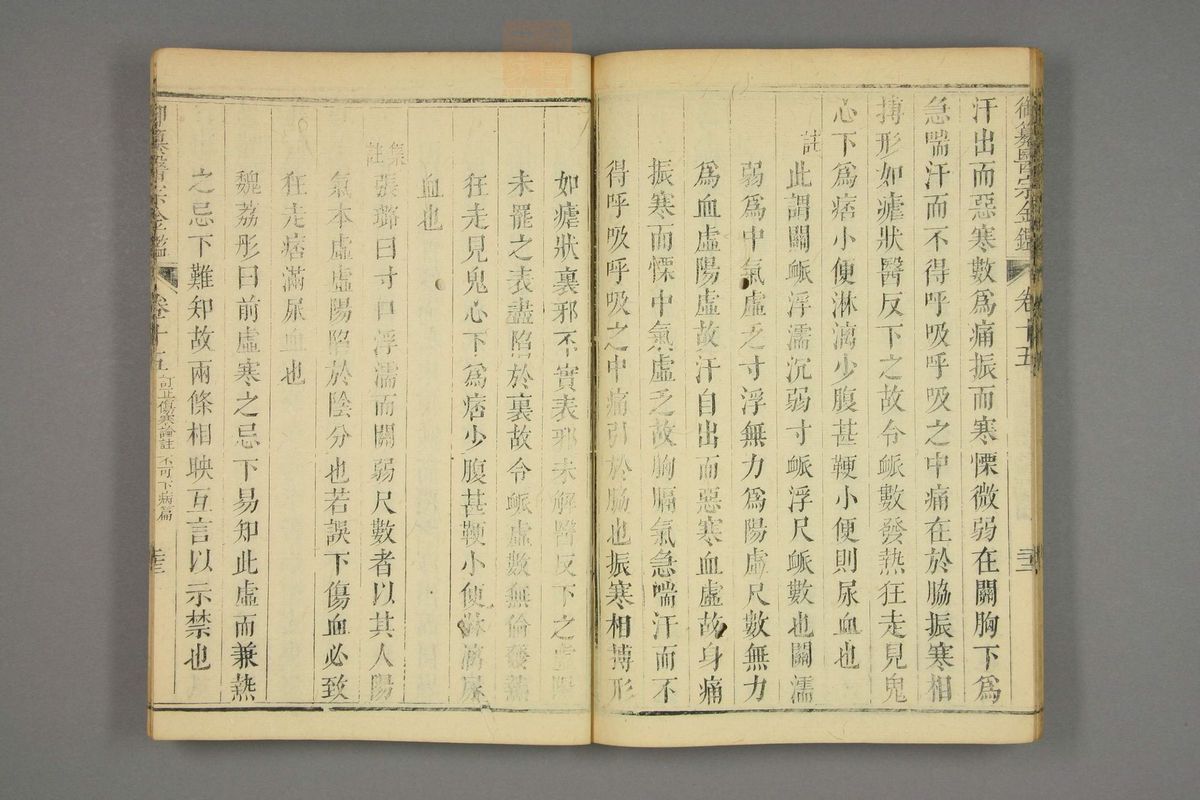 御纂醫宗金鑑 卷十五 三二
汗出而惡寒數爲痛振而寒慄微弱在關胸下爲
急喘汗而不得呼吸呼吸之中痛在於脇振寒相
搏形如瘧狀醫反下之故令脈數發熱狂走見鬼
心下爲痞小便淋漓少腹甚鞕小便則尿血也
註
此謂關脈浮濡沉弱寸脈浮尺脈數也關濡
弱爲中氣虛乏寸浮無力爲陽虛尺數無力
爲血虛陽虛故汗自出而惡寒血虛故身痛
振寒而慄中氣虛乏故胸膈氣急喘汗而不
得呼吸呼吸之中痛引於脇也振寒相搏形
如瘧狀裏邪不實表邪未解醫反下之虛陽
未罷之表盡陷於裏故令脈虛數無倫發熱
狂走見鬼心下爲痞少腹甚鞕小便淋漓尿
血也
集註
張璐曰寸口浮濡而關弱尺數者以其人陽
氣本虛虛陽陷於陰分也若誤下傷血必致
狂走痞滿尿血也
魏荔彤曰前虛寒之忌下易知此虛而兼熱
之忌下難知故兩條相映互言以示禁也
御纂醫宗金鑑 卷十五 訂正傷寒論註 不可下病篇